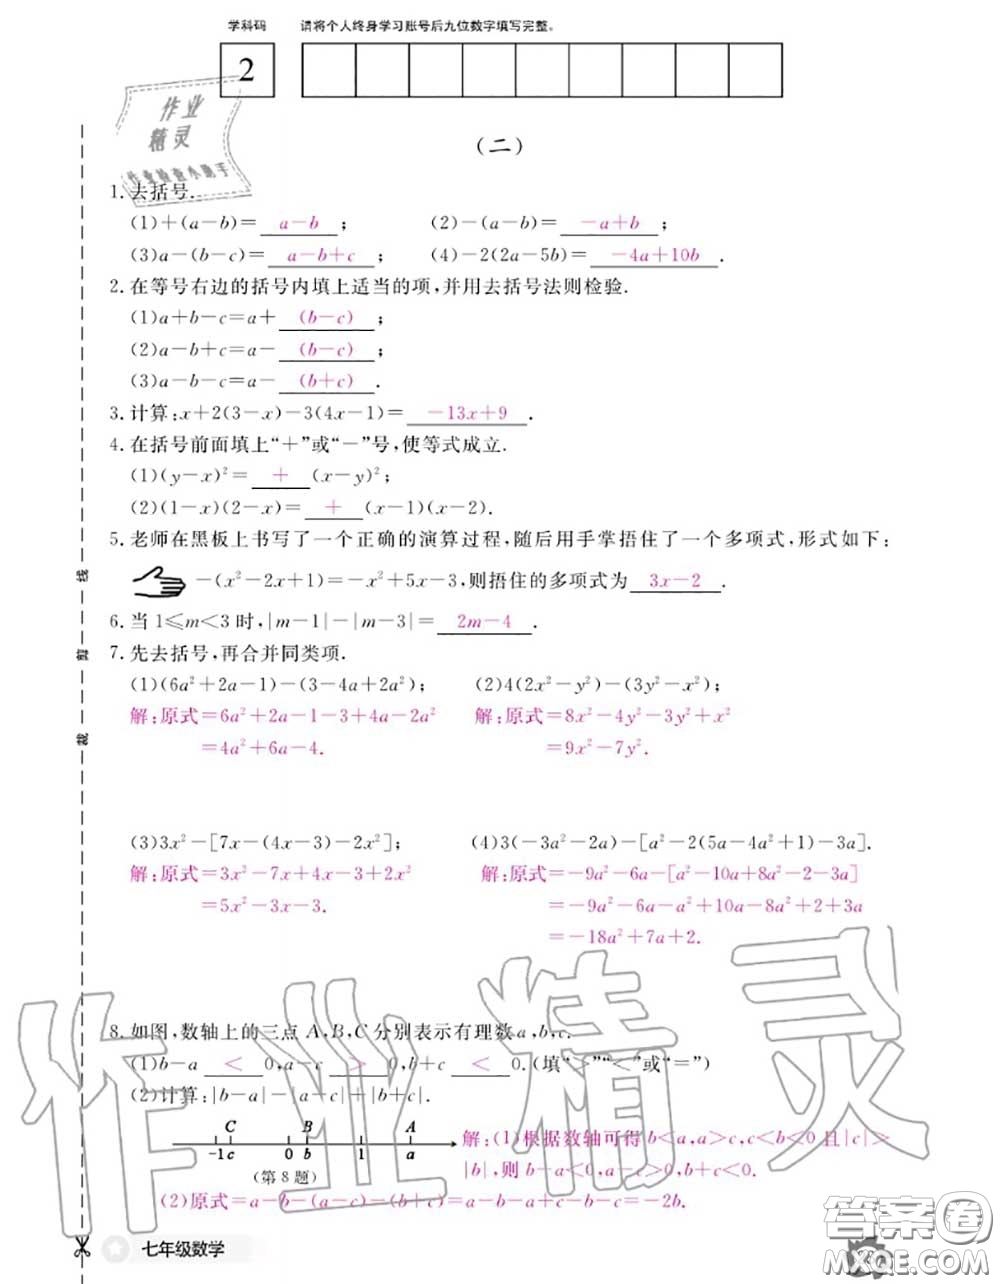 学科码 请将个人终身学习账号后九位数字填写完整。
2
作业
精灵
作业检查小助手
(二)
1.去括号.
(1)+(a-b)= a-b ; (2)-(a-b)= -a+b ;
(3)a-(b-c)= a-b+c ; (4)-2(2a-5b)= -4a+10b .
2.在等号右边的括号内填上适当的项,并用去括号法则检验.
(1)a+b-c=a+ (b-c) ;
(2)a-b+c=a- (b-c) ;
(3)a-b-c=a- (b+c) .
3.计算:x+2(3-x)-3(4x-1)= -13x+9 .
4.在括号前面填上“+”或“-”号,使等式成立.
(1)(y-x)²= + (x-y)²;
(2)(1-x)(2-x)= + (x-1)(x-2).
5.老师在黑板上书写了一个正确的演算过程,随后用手掌捂住了一个多项式,形式如下:
-(x²-2x+1)=-x²+5x-3,则捂住的多项式为 3x-2 .
6.当1≤m<3时,|m-1|-|m-3|= 2m-4 .
7.先去括号,再合并同类项.
(1)(6a²+2a-1)-(3-4a+2a²); (2)4(2x²-y²)-(3y²-x²);
解:原式=6a²+2a-1-3+4a-2a² 解:原式=8x²-4y²-3y²+x²
=4a²+6a-4. =9x²-7y².
(3)3x²-[7x-(4x-3)-2x²]; (4)3(-3a²-2a)-[a²-2(5a-4a²+1)-3a].
解:原式=3x²-7x+4x-3+2x² 解:原式=-9a²-6a-[a²-10a+8a²-2-3a]
=5x²-3x-3. =-9a²-6a-a²+10a-8a²+2+3a
=-18a²+7a+2.
8.如图,数轴上的三点A,B,C分别表示有理数a,b,c.
(1)b-a < 0,a-c > 0,b+c < 0.(填“>”“<”或“=”)
(2)计算:|b-a|-|a-c|+|b+c|.
C B A
-1 c 0 b 1 a
(第8题)
解:(1)根据数轴可得b<a,a>c,c<b<0且|c|>
|b|,则b-a<0,a-c>0,b+c<0.
(2)原式=a-b-(a-c)-(b+c)=a-b-a+c-b-c=-2b.
线
剪
裁
七年级数学
作业精灵
答案圈